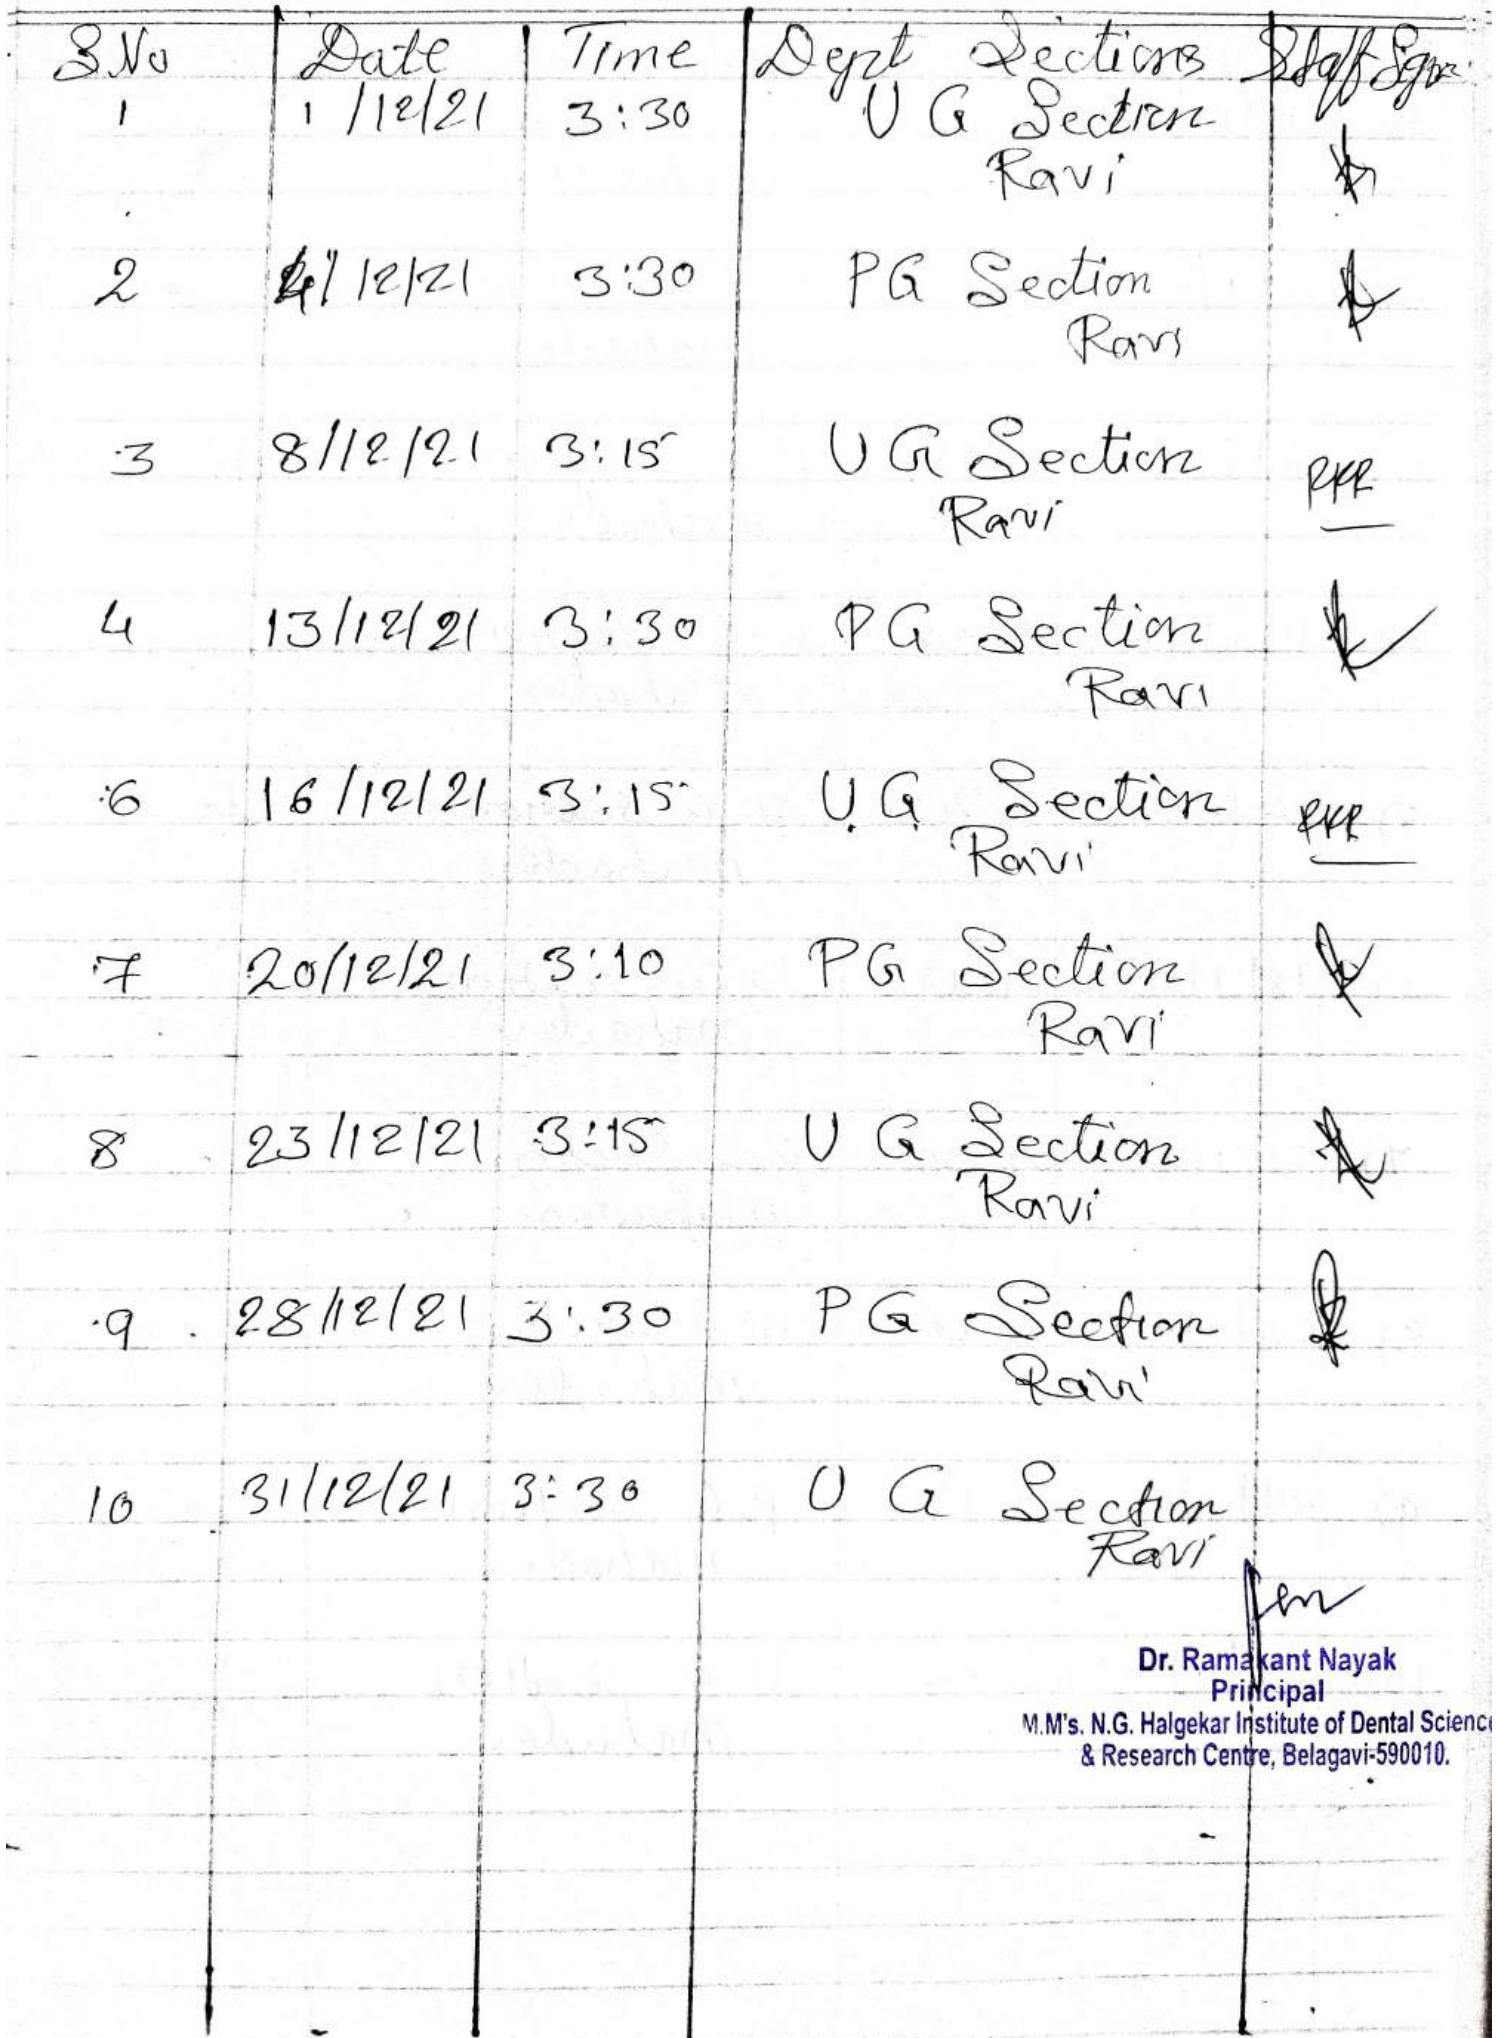 S.No Date Time Dept Sections Staff Sgn
1 1/12/21 3:30 UG Section
Ravi
2 4/12/21 3:30 PG Section
Ravi
3 8/12/21 3:15 UG Section
Ravi RKR
4 13/12/21 3:30 PG Section
Ravi
6 16/12/21 3:15 U.G. Section
Ravi RKR
7 20/12/21 3:10 PG Section
Ravi
8 23/12/21 3:15 UG Section
Ravi
9 28/12/21 3:30 PG Section
Ravi
10 31/12/21 3:30 UG Section
Ravi
Dr. Ramakant Nayak
Principal
M.M's. N.G. Halgekar Institute of Dental Science
& Research Centre, Belagavi-590010.